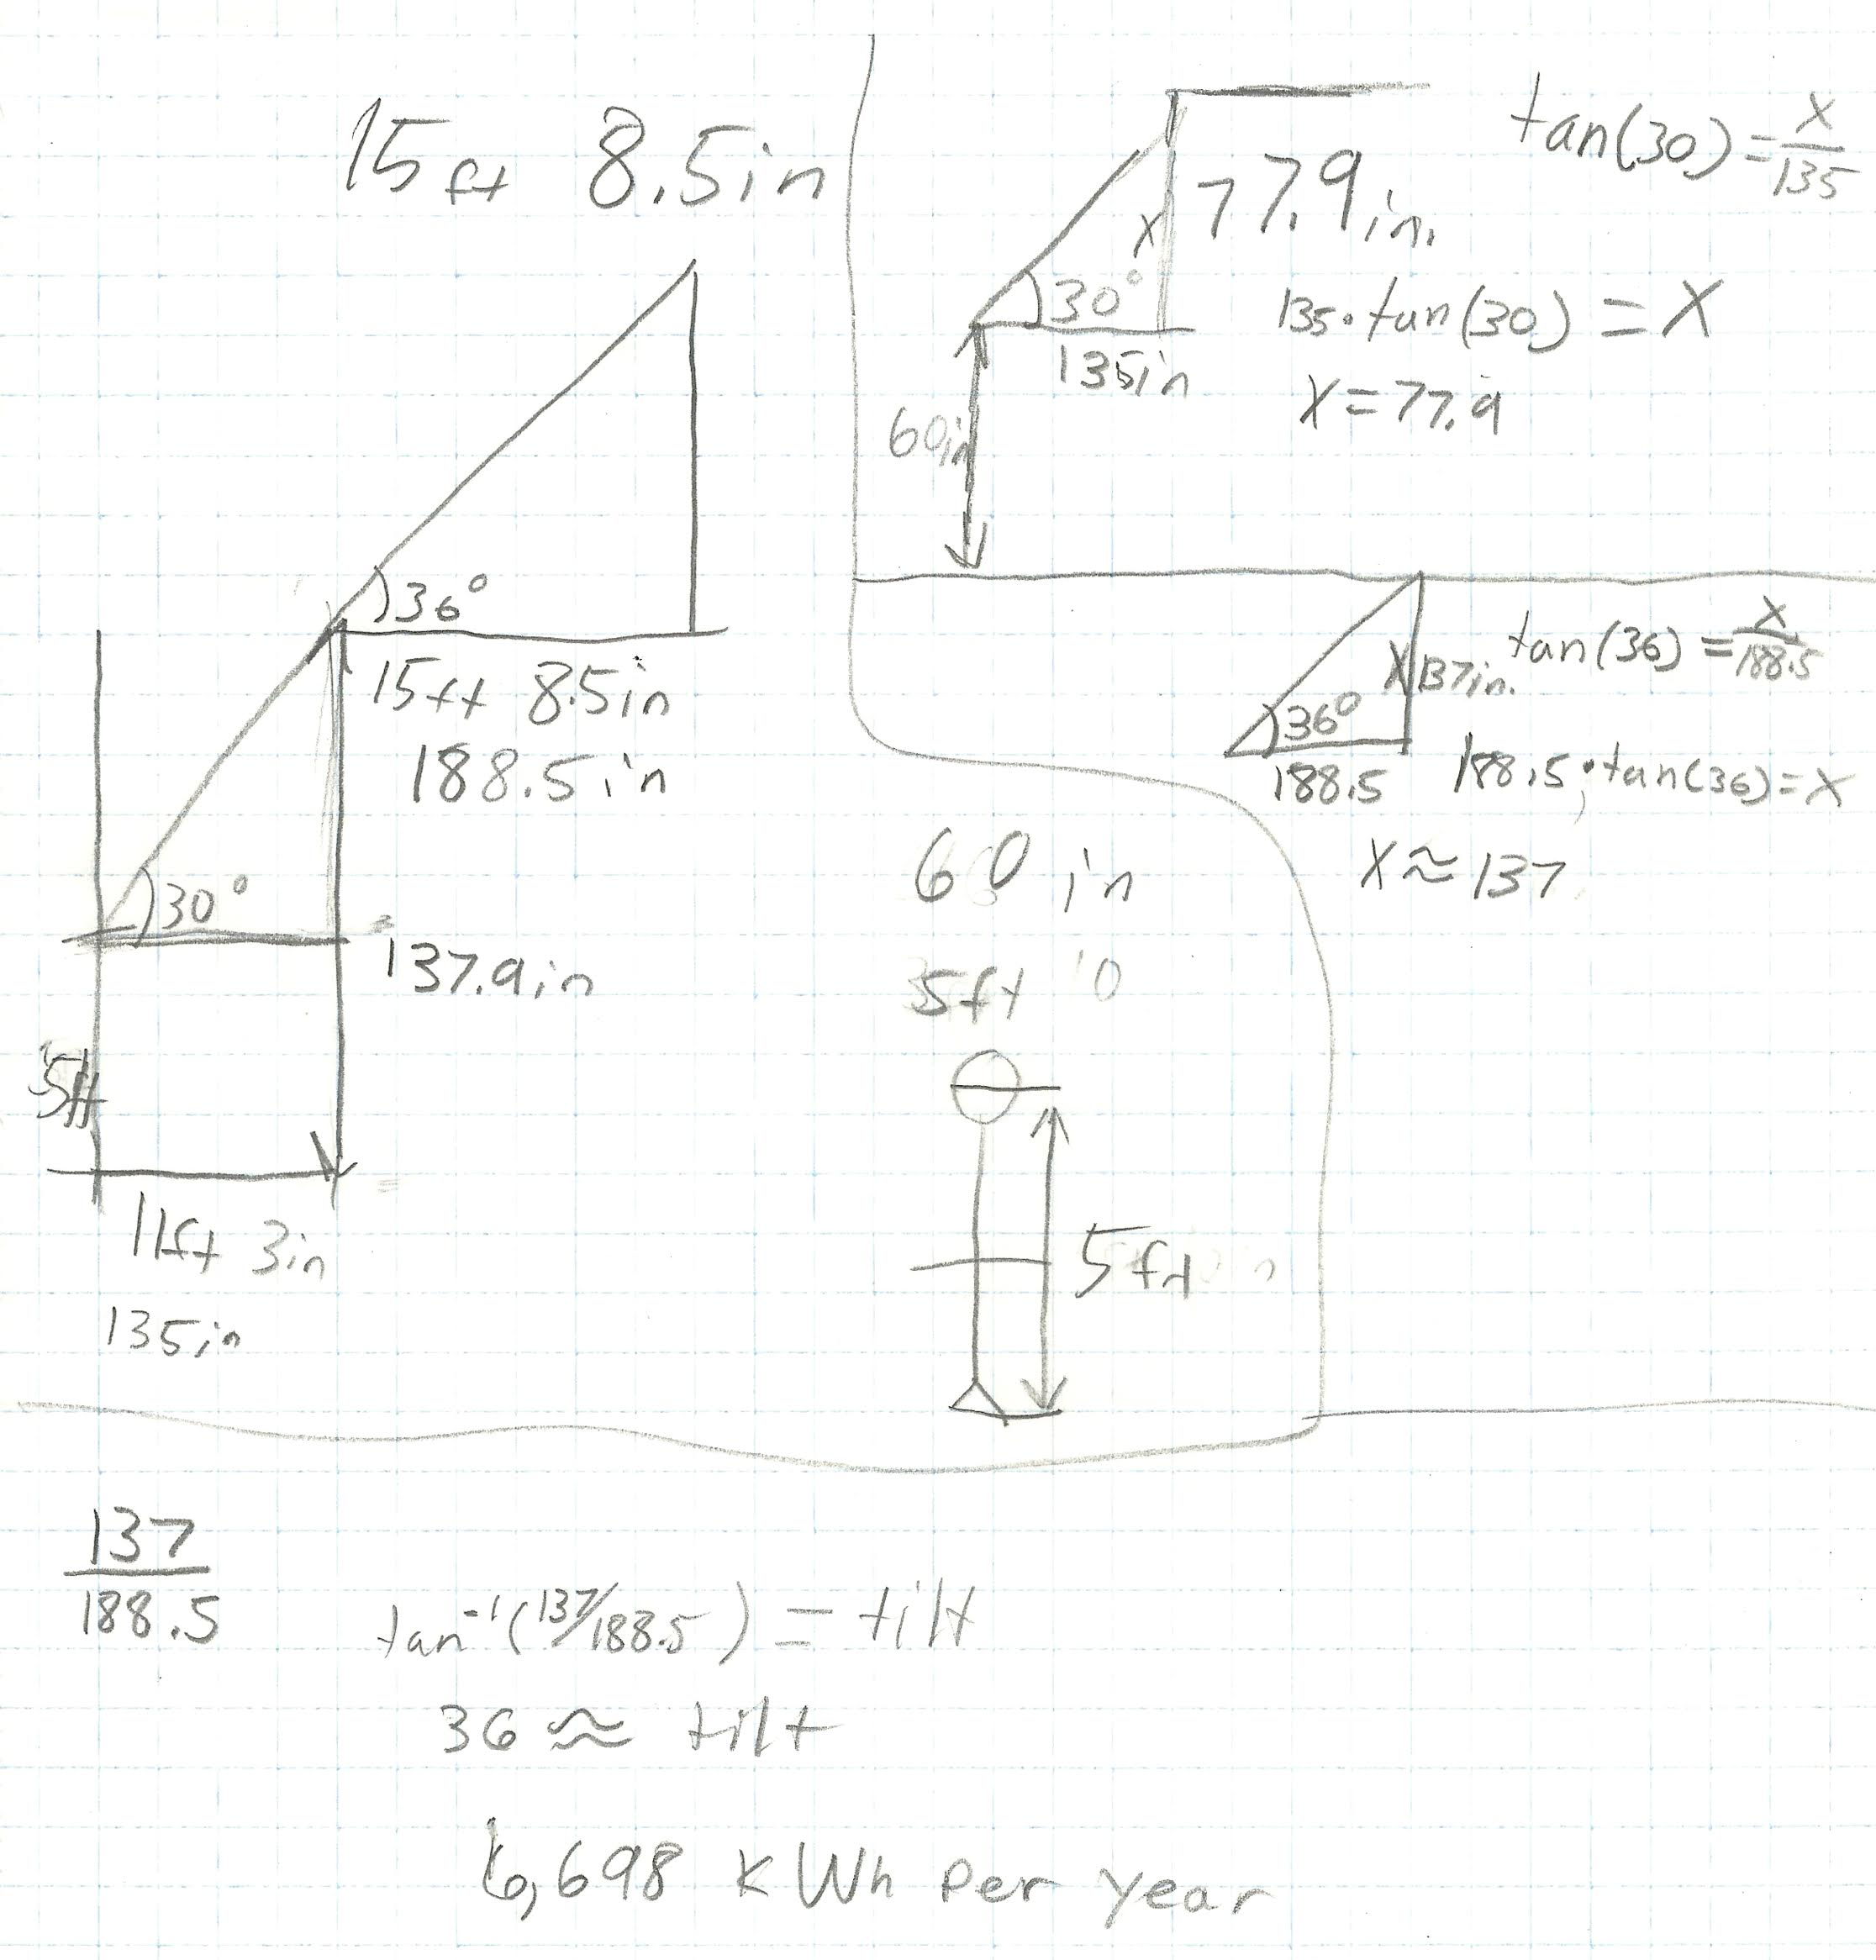 15 ft 8.5 in
36°
15 ft 8.5 in
188.5 in
30°
137.9 in
5ft
11 ft 3 in
135 in
tan(30) = x/135
77.9 in.
x
30°
135 in
60 in
135 · tan(30) = x
x = 77.9
tan(36) = x/188.5
x
137 in.
36°
188.5
188.5 · tan(36) = x
x ≈ 137
60 in
5ft
5ft
137
188.5
tan⁻¹(137/188.5) = tilt
36 ≈ tilt
6,698 KWh Per year